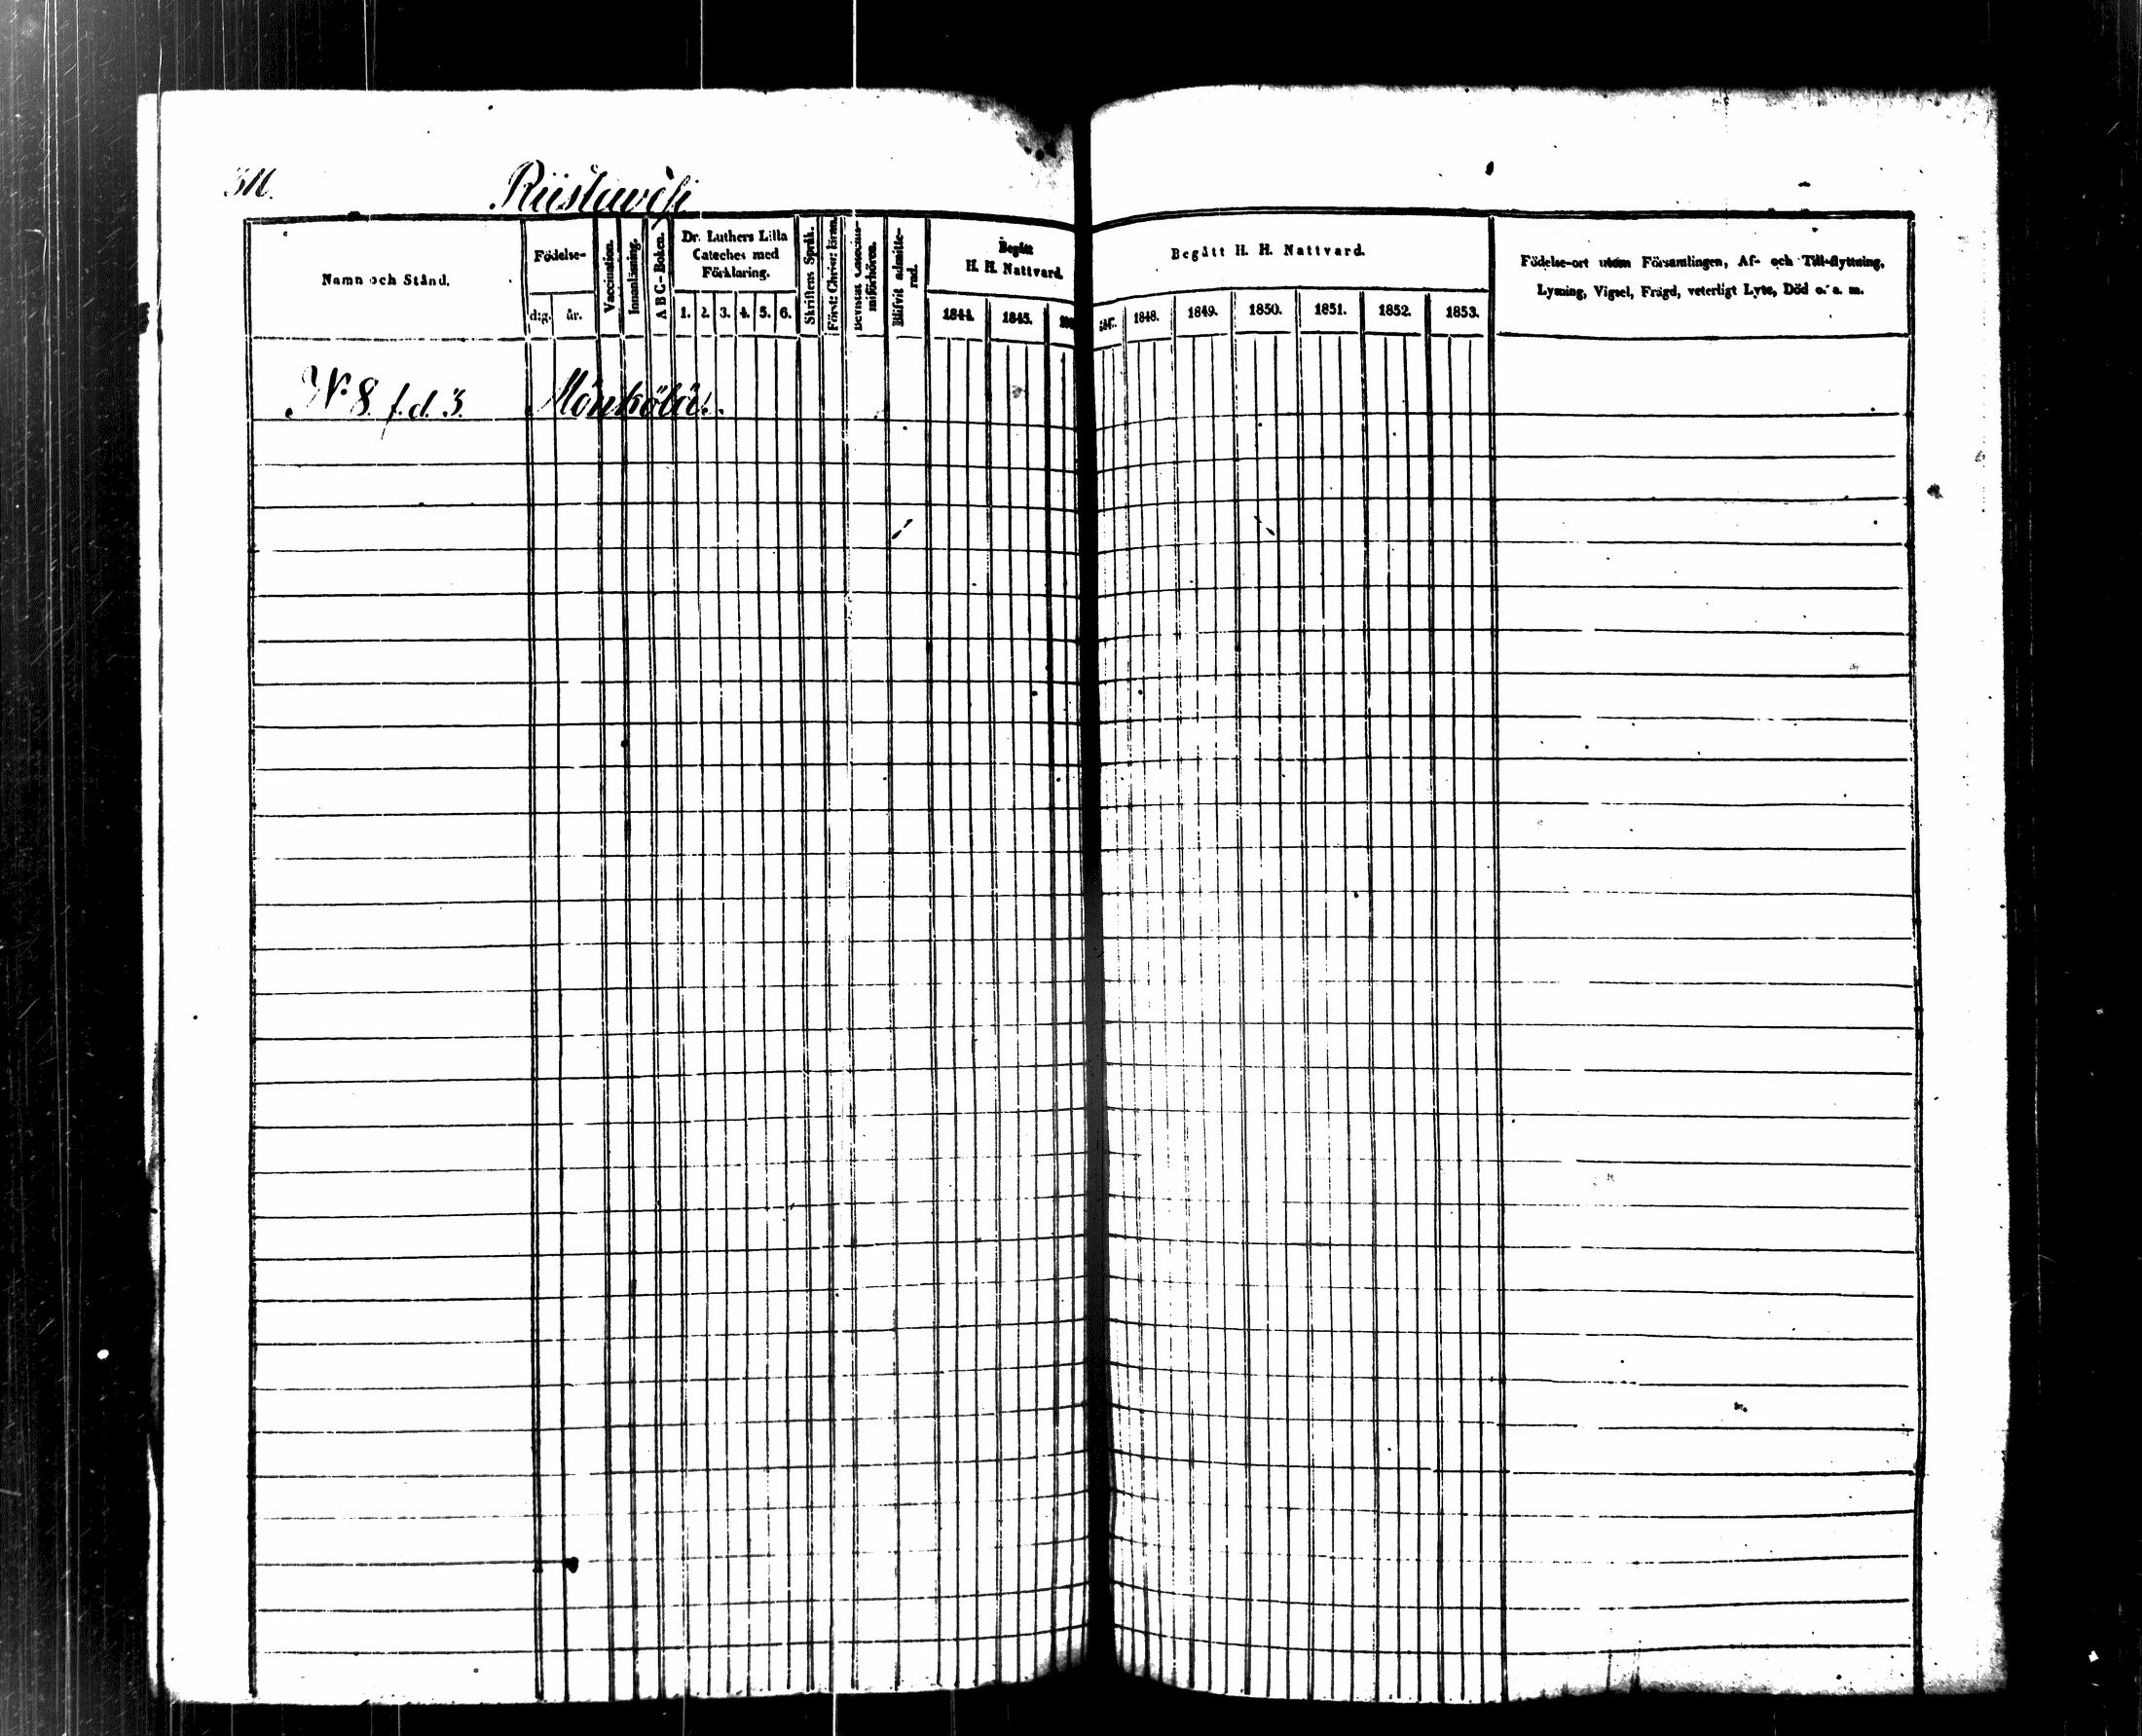 311.
Riistawesi
Namn och Stånd.
Födelse-
dag.
år.
Vaccination.
Innanläsning.
A B C-Boken.
Dr. Luthers Lilla
Cateches med
Förklaring.
1. 2. 3. 4. 5. 6.
Skriftens Språk.
Först: Christ: läran.
Bevistat Catechis-
miförhören.
Blifvit admitte-
rad.
Begått
H. H. Nattvard.
1844. 1845.
Begått H. H. Nattvard.
1847. 1848. 1849. 1850. 1851. 1852. 1853.
Födelse-ort utom Församlingen, Af- och Till-flyttning,
Lysning, Vigsel, Frägd, veterligt Lyte, Död o. a. m.
N:o 8. f. d. 3. Mönkölä.